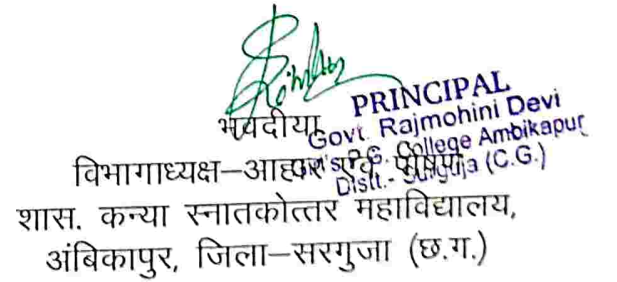 PRINCIPAL
Govt. Rajmohini Devi
Girl's P.G. College Ambikapur
Distt.- Surguja (C.G.)
भवदीया
विभागाध्यक्ष–आहार एवं पोषण
शास. कन्या स्नातकोत्तर महाविद्यालय,
अंबिकापुर, जिला–सरगुजा (छ.ग.)